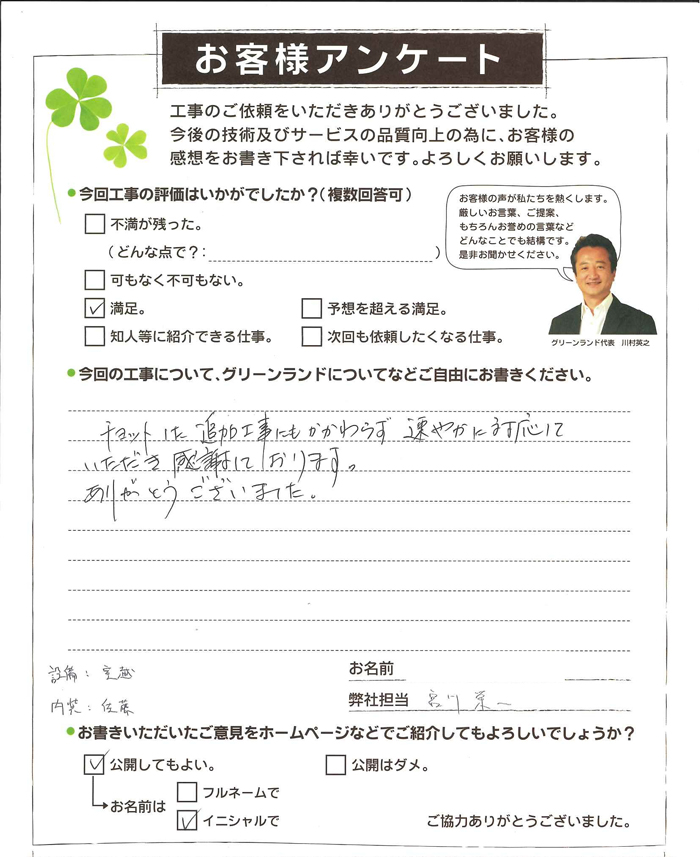 お客様アンケート
工事のご依頼をいただきありがとうございました。
今後の技術及びサービスの品質向上の為に、お客様の
感想をお書き下されば幸いです。よろしくお願いします。
今回工事の評価はいかがでしたか？（複数回答可）
不満が残った。
（どんな点で？：　）
可もなく不可もない。
満足。
予想を超える満足。
知人等に紹介できる仕事。
次回も依頼したくなる仕事。
お客様の声が私たちを熱くします。
厳しいお言葉、ご提案、
もちろんお誉めの言葉など
どんなことでも結構です。
是非お聞かせください。
グリーンランド代表　川村英之
今回の工事について、グリーンランドについてなどご自由にお書きください。
チョットした追加工事にもかかわらず速やかに対応して
いただき感謝しております。
ありがとうございました。
お名前
設備：
弊社担当 宮川 栄一
内装：佐藤
お書きいただいたご意見をホームページなどでご紹介してもよろしいでしょうか？
公開してもよい。
公開はダメ。
お名前は
フルネームで
イニシャルで
ご協力ありがとうございました。